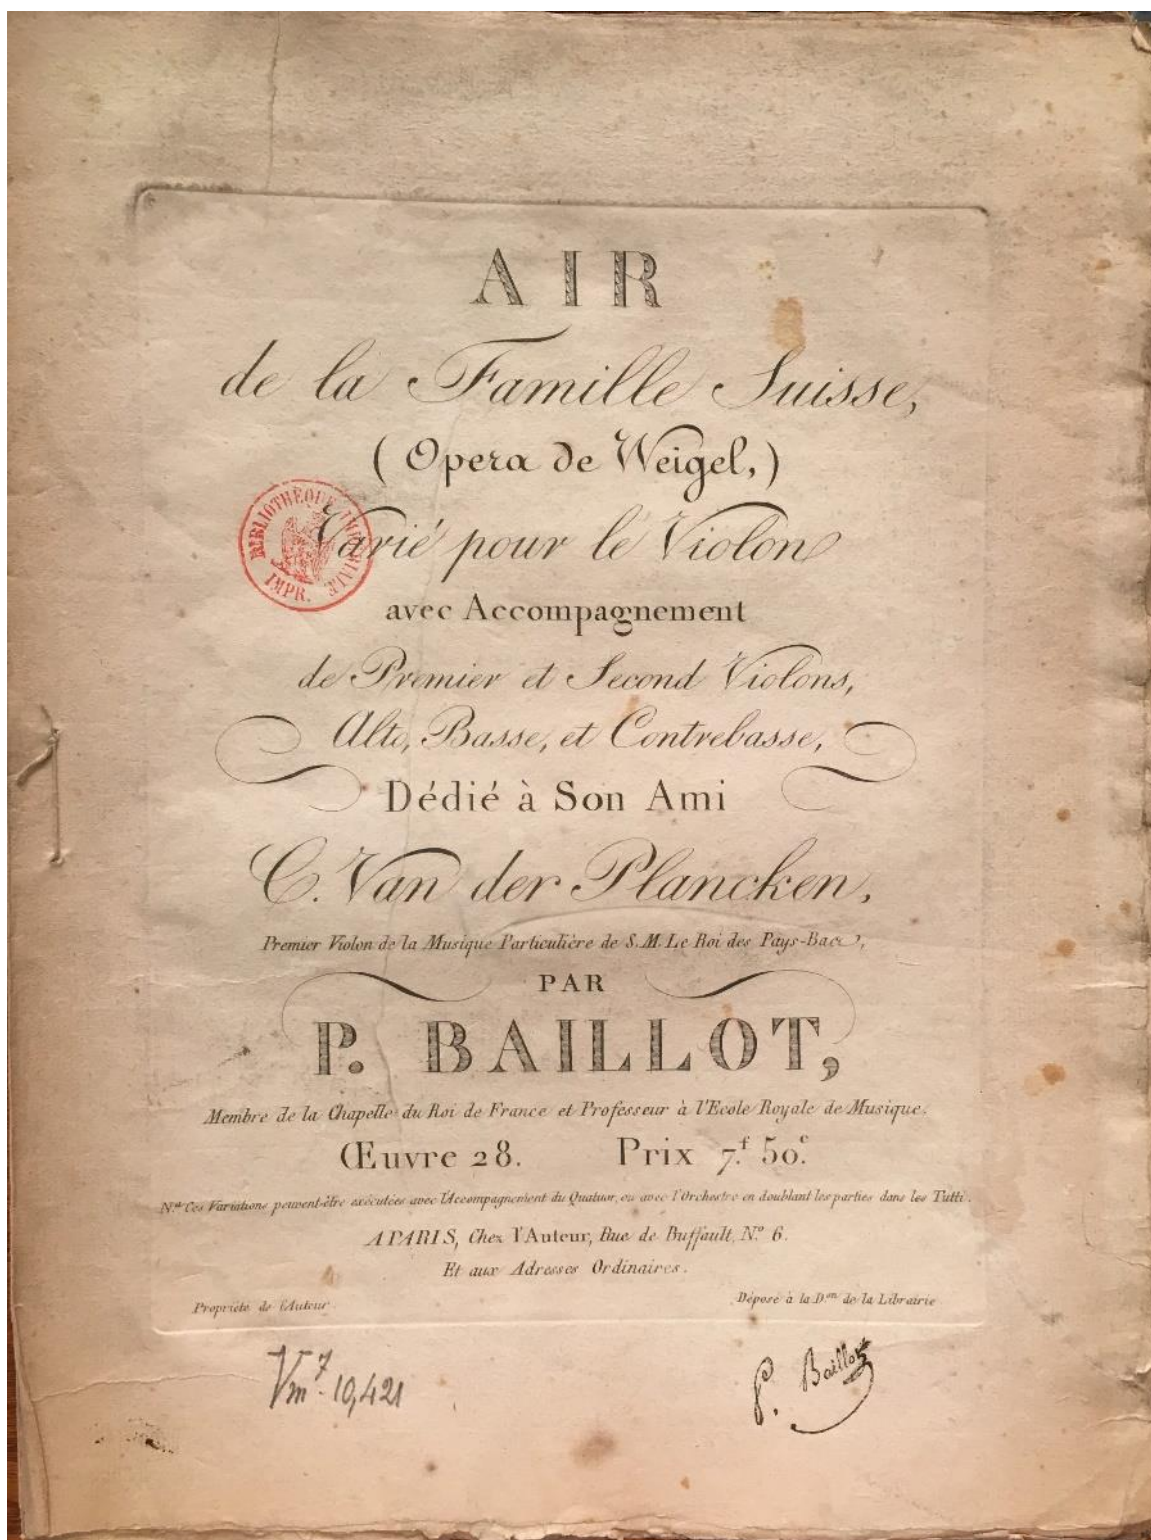 AIR
de la Famille Suisse,
(Opera de Weigel,)
Varié pour le Violon
BIBLIOTHÈQUE IMPERIALE
IMPR.
avec Accompagnement
de Premier et Second Violons,
Alto, Basse, et Contrebasse,
Dédié à Son Ami
C. Van der Plancken,
Premier Violon de la Musique Particulière de S. M. Le Roi des Pays-Bas,
PAR
P. BAILLOT,
Membre de la Chapelle du Roi de France et Professeur à l'Ecole Royale de Musique.
Œuvre 28. Prix 7.f 50.c
N.a Ces Variations peuvent-être exécutées avec l'Accompagnement du Quatuor, ou avec l'Orchestre en doublant les parties dans les Tutti.
A PARIS, Chez l'Auteur, Rue de Buffault, N.o 6.
Et aux Adresses Ordinaires.
Propriété de l'Auteur. Déposé à la D.on de la Librairie
Vm.7 10,421 P. Baillot